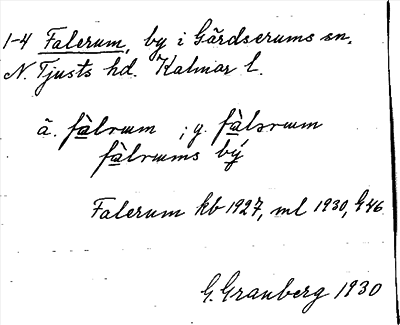 1-4 Falerum, by i Gärdserums sn.
N. Tjusts hd. Kalmar l.
ä. fàlrum ; y. fàlərum
fàlrums bý
Falerum kb 1927, ml 1930, G 46
G. Granberg 1930